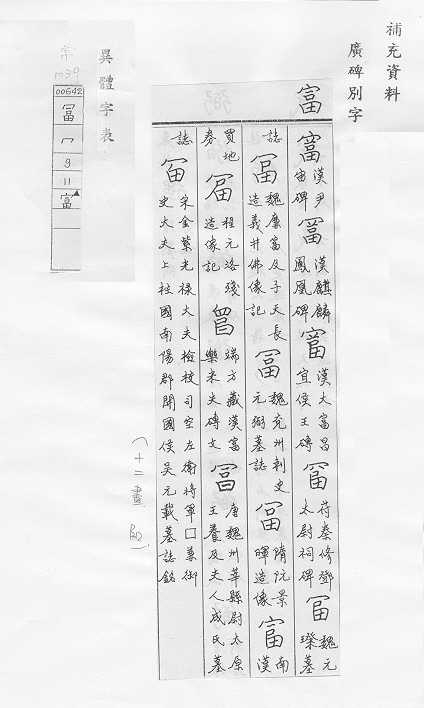 補充資料
廣碑別字
富
富 漢尹宙碑 冨 漢麒麟鳳凰碑 富 漢大富昌宜侯王磚 冨 苻秦修鄧太尉祠碑 冨 魏元璨墓
誌 冨 魏廉富及子天長造義井佛像記 冨 魏兗州刺史元弼墓誌 冨 隋阮景暉造像 富 南漢
買地券 冨 程元洛殘造像記 端方藏漢富樂未央磚文 冨 唐魏州莘縣尉太原王養及夫人成氏墓
誌 宋金紫光祿大夫檢校司空左衛將軍□兼御史大夫上柱國南陽郡開國侯吳元載墓誌銘
異體字表
00642
冨
冖
9
11
富